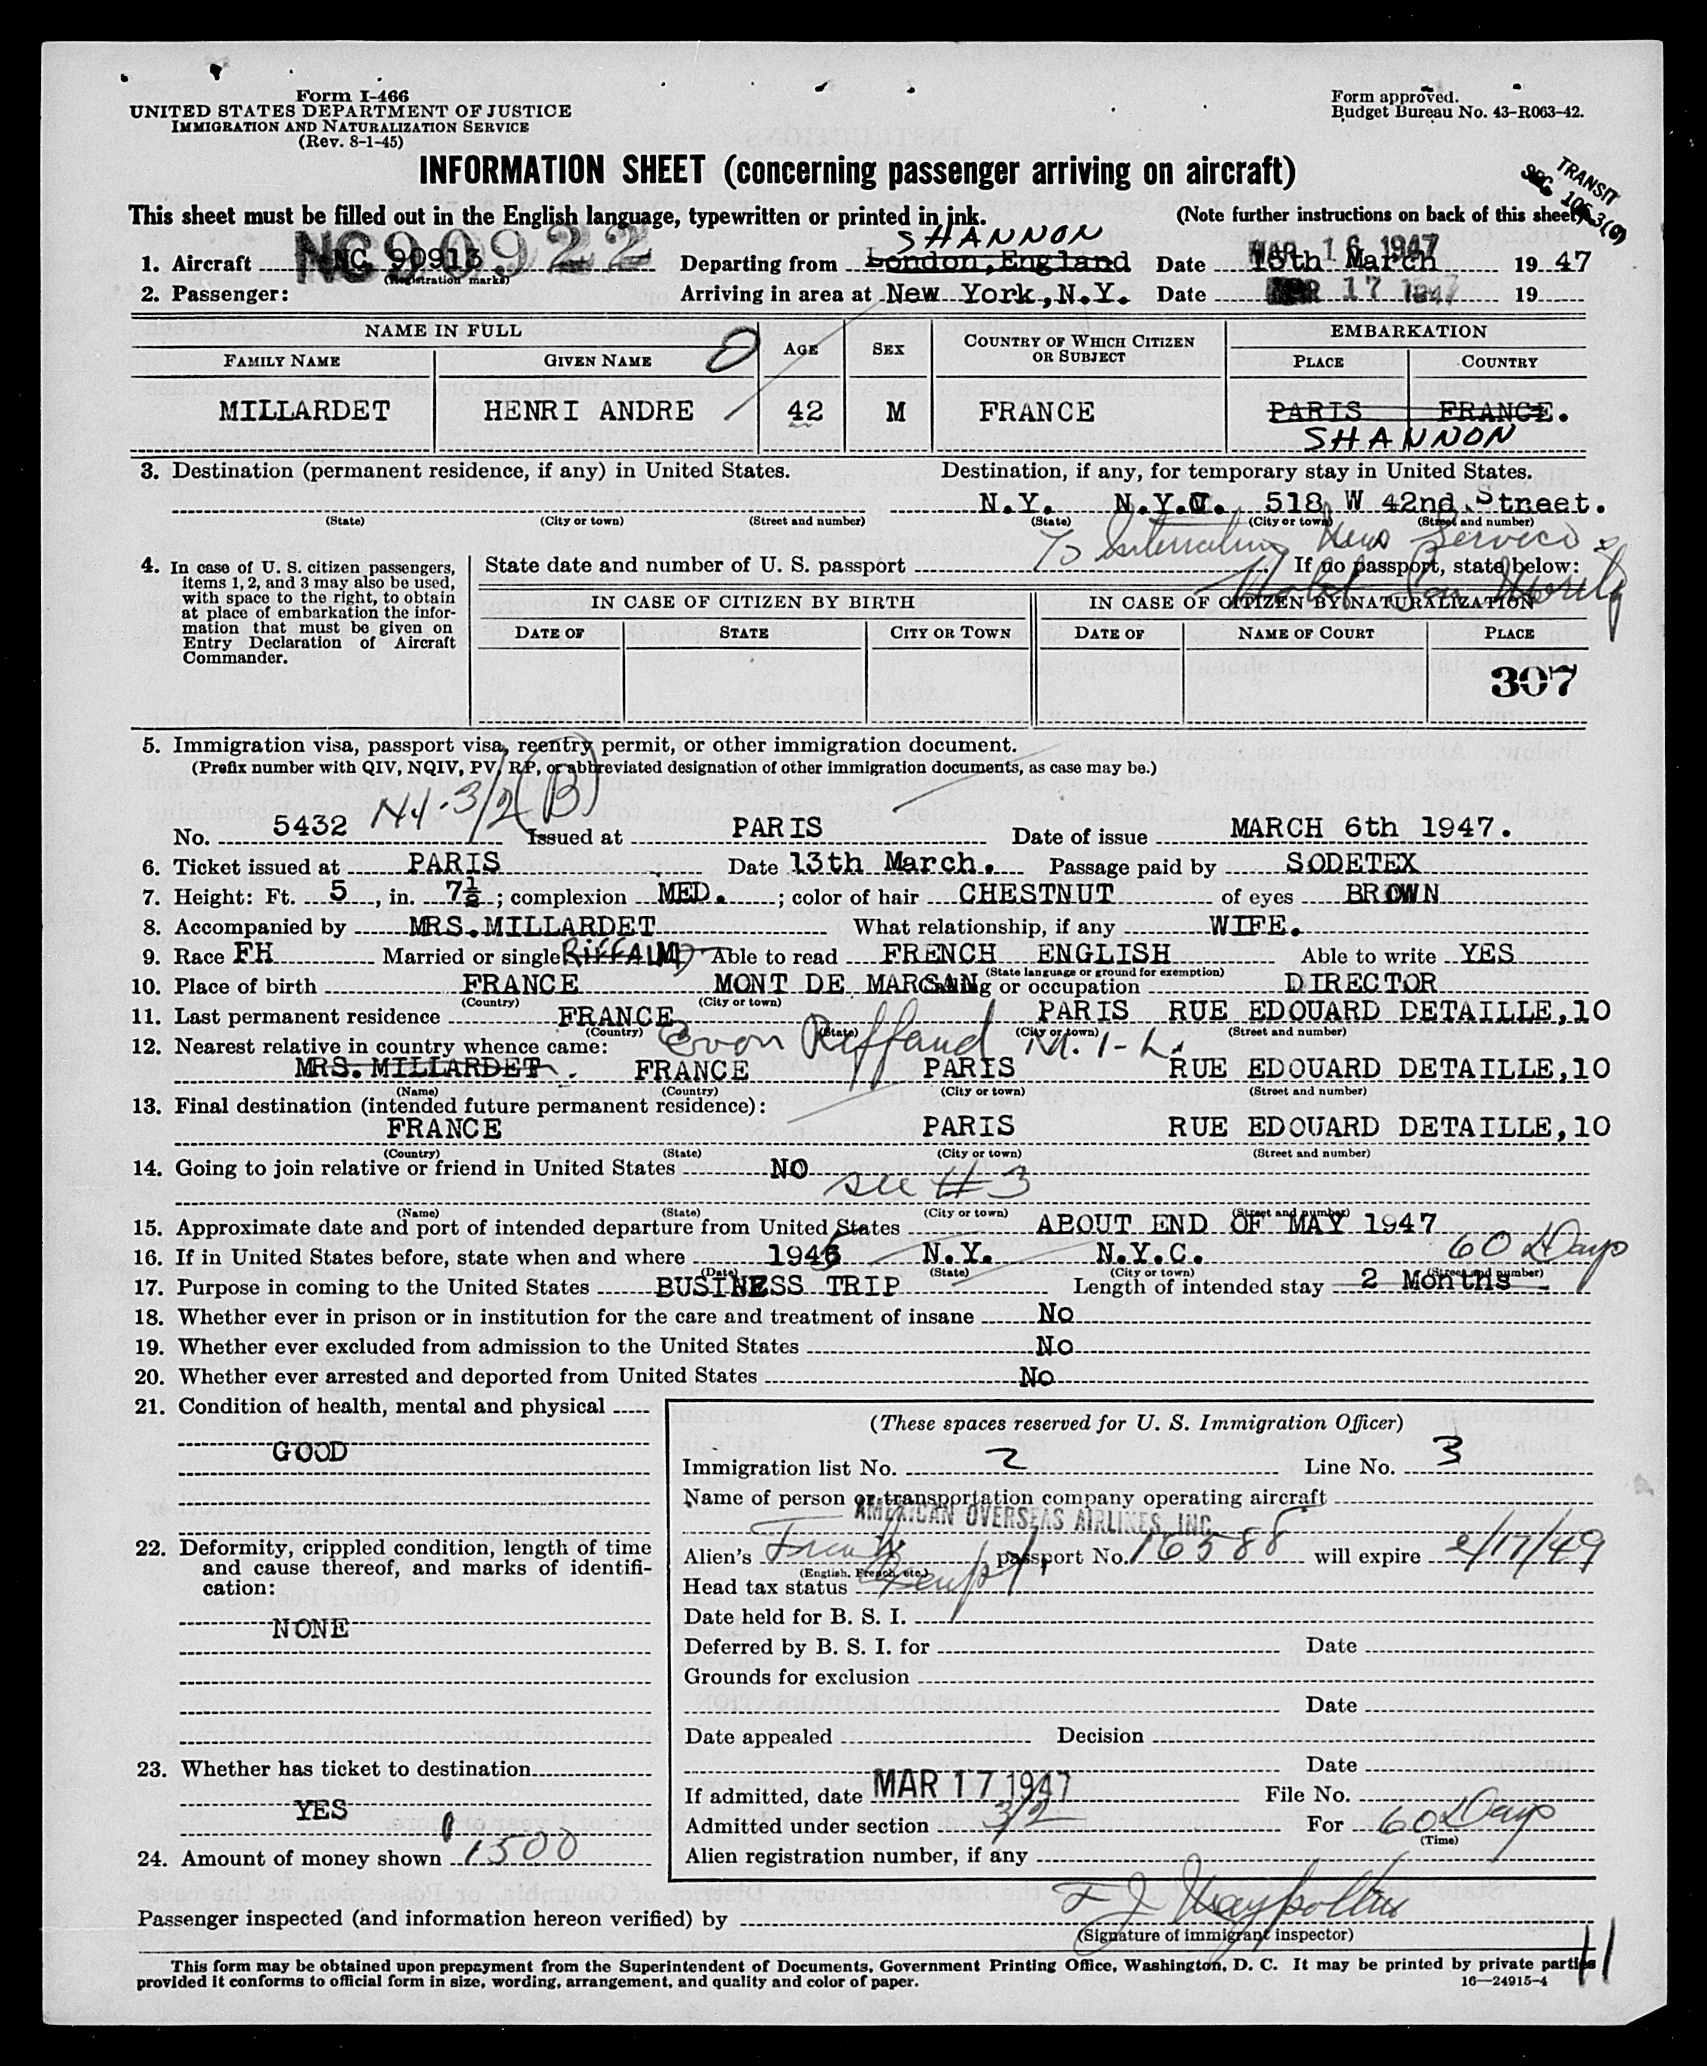 Form I-466
UNITED STATES DEPARTMENT OF JUSTICE
IMMIGRATION AND NATURALIZATION SERVICE
(Rev. 8-1-45)
Form approved.
Budget Bureau No. 43-R063-42.
INFORMATION SHEET (concerning passenger arriving on aircraft)
TRANSIT
SEC. 105.3(6)
This sheet must be filled out in the English language, typewritten or printed in ink. (Note further instructions on back of this sheet)
NC90922 SHANNON MAR 16 1947
1. Aircraft NC 90913 Departing from London, England Date 15th March 1947
(Registration marks)
2. Passenger: Arriving in area at New York, N.Y. Date MAR 17 1947 19
NAME IN FULL AGE SEX COUNTRY OF WHICH CITIZEN OR SUBJECT EMBARKATION
FAMILY NAME GIVEN NAME PLACE COUNTRY
MILLARDET HENRI ANDRE 42 M FRANCE PARIS FRANCE.
SHANNON
3. Destination (permanent residence, if any) in United States. Destination, if any, for temporary stay in United States.
N.Y. N.Y.C. 518 W 42nd Street.
(State) (City or town) (Street and number) (State) (City or town) (Street and number)
To International News Service
4. In case of U. S. citizen passengers, items 1, 2, and 3 may also be used, with space to the right, to obtain at place of embarkation the information that must be given on Entry Declaration of Aircraft Commander.
State date and number of U. S. passport If no passport, state below:
Hotel San Moritz
IN CASE OF CITIZEN BY BIRTH IN CASE OF CITIZEN BY NATURALIZATION
DATE OF STATE CITY OR TOWN DATE OF NAME OF COURT PLACE
307
5. Immigration visa, passport visa, reentry permit, or other immigration document.
(Prefix number with QIV, NQIV, PV, RP, or abbreviated designation of other immigration documents, as case may be.)
3/2(B)
No. 5432 Issued at PARIS Date of issue MARCH 6th 1947.
6. Ticket issued at PARIS Date 13th March. Passage paid by SODETEX
7. Height: Ft. 5, in. 7½; complexion MED.; color of hair CHESTNUT of eyes BROWN
8. Accompanied by MRS. MILLARDET What relationship, if any WIFE.
9. Race FH Married or single M Able to read FRENCH ENGLISH Able to write YES
(State language or ground for exemption)
10. Place of birth FRANCE MONT DE MARSAN Calling or occupation DIRECTOR
(Country) (City or town)
11. Last permanent residence FRANCE PARIS RUE EDOUARD DETAILLE,10
(Country) (State) (City or town) (Street and number)
12. Nearest relative in country whence came: Riffaud
MRS. MILLARDET. FRANCE PARIS RUE EDOUARD DETAILLE,10
(Name) (Country) (City or town) (Street and number)
13. Final destination (intended future permanent residence):
FRANCE PARIS RUE EDOUARD DETAILLE,10
(Country) (State) (City or town) (Street and number)
14. Going to join relative or friend in United States NO
see #3
(Name) (State) (City or town) (Street and number)
15. Approximate date and port of intended departure from United States ABOUT END OF MAY 1947
60 Days
16. If in United States before, state when and where 1946 N.Y. N.Y.C.
(Date) (State) (City or town) (Street and number)
17. Purpose in coming to the United States BUSINESS TRIP Length of intended stay 2 Months
18. Whether ever in prison or in institution for the care and treatment of insane No
19. Whether ever excluded from admission to the United States No
20. Whether ever arrested and deported from United States No
21. Condition of health, mental and physical
GOOD
22. Deformity, crippled condition, length of time and cause thereof, and marks of identification:
NONE
23. Whether has ticket to destination
YES
24. Amount of money shown 1500
(These spaces reserved for U. S. Immigration Officer)
Immigration list No. 2 Line No. 3
Name of person or transportation company operating aircraft
AMERICAN OVERSEAS AIRLINES, INC.
Alien's French passport No. 16588 will expire 2/17/49
(English, French, etc.)
Head tax status Exempt
Date held for B. S. I.
Deferred by B. S. I. for Date
Grounds for exclusion
Date
Date appealed Decision
Date
If admitted, date MAR 17 1947 File No.
Admitted under section 3/2 For 60 Days
(Time)
Alien registration number, if any
Passenger inspected (and information hereon verified) by
(Signature of immigrant inspector)
11
This form may be obtained upon prepayment from the Superintendent of Documents, Government Printing Office, Washington, D. C. It may be printed by private parties
provided it conforms to official form in size, wording, arrangement, and quality and color of paper. 16—24915-4